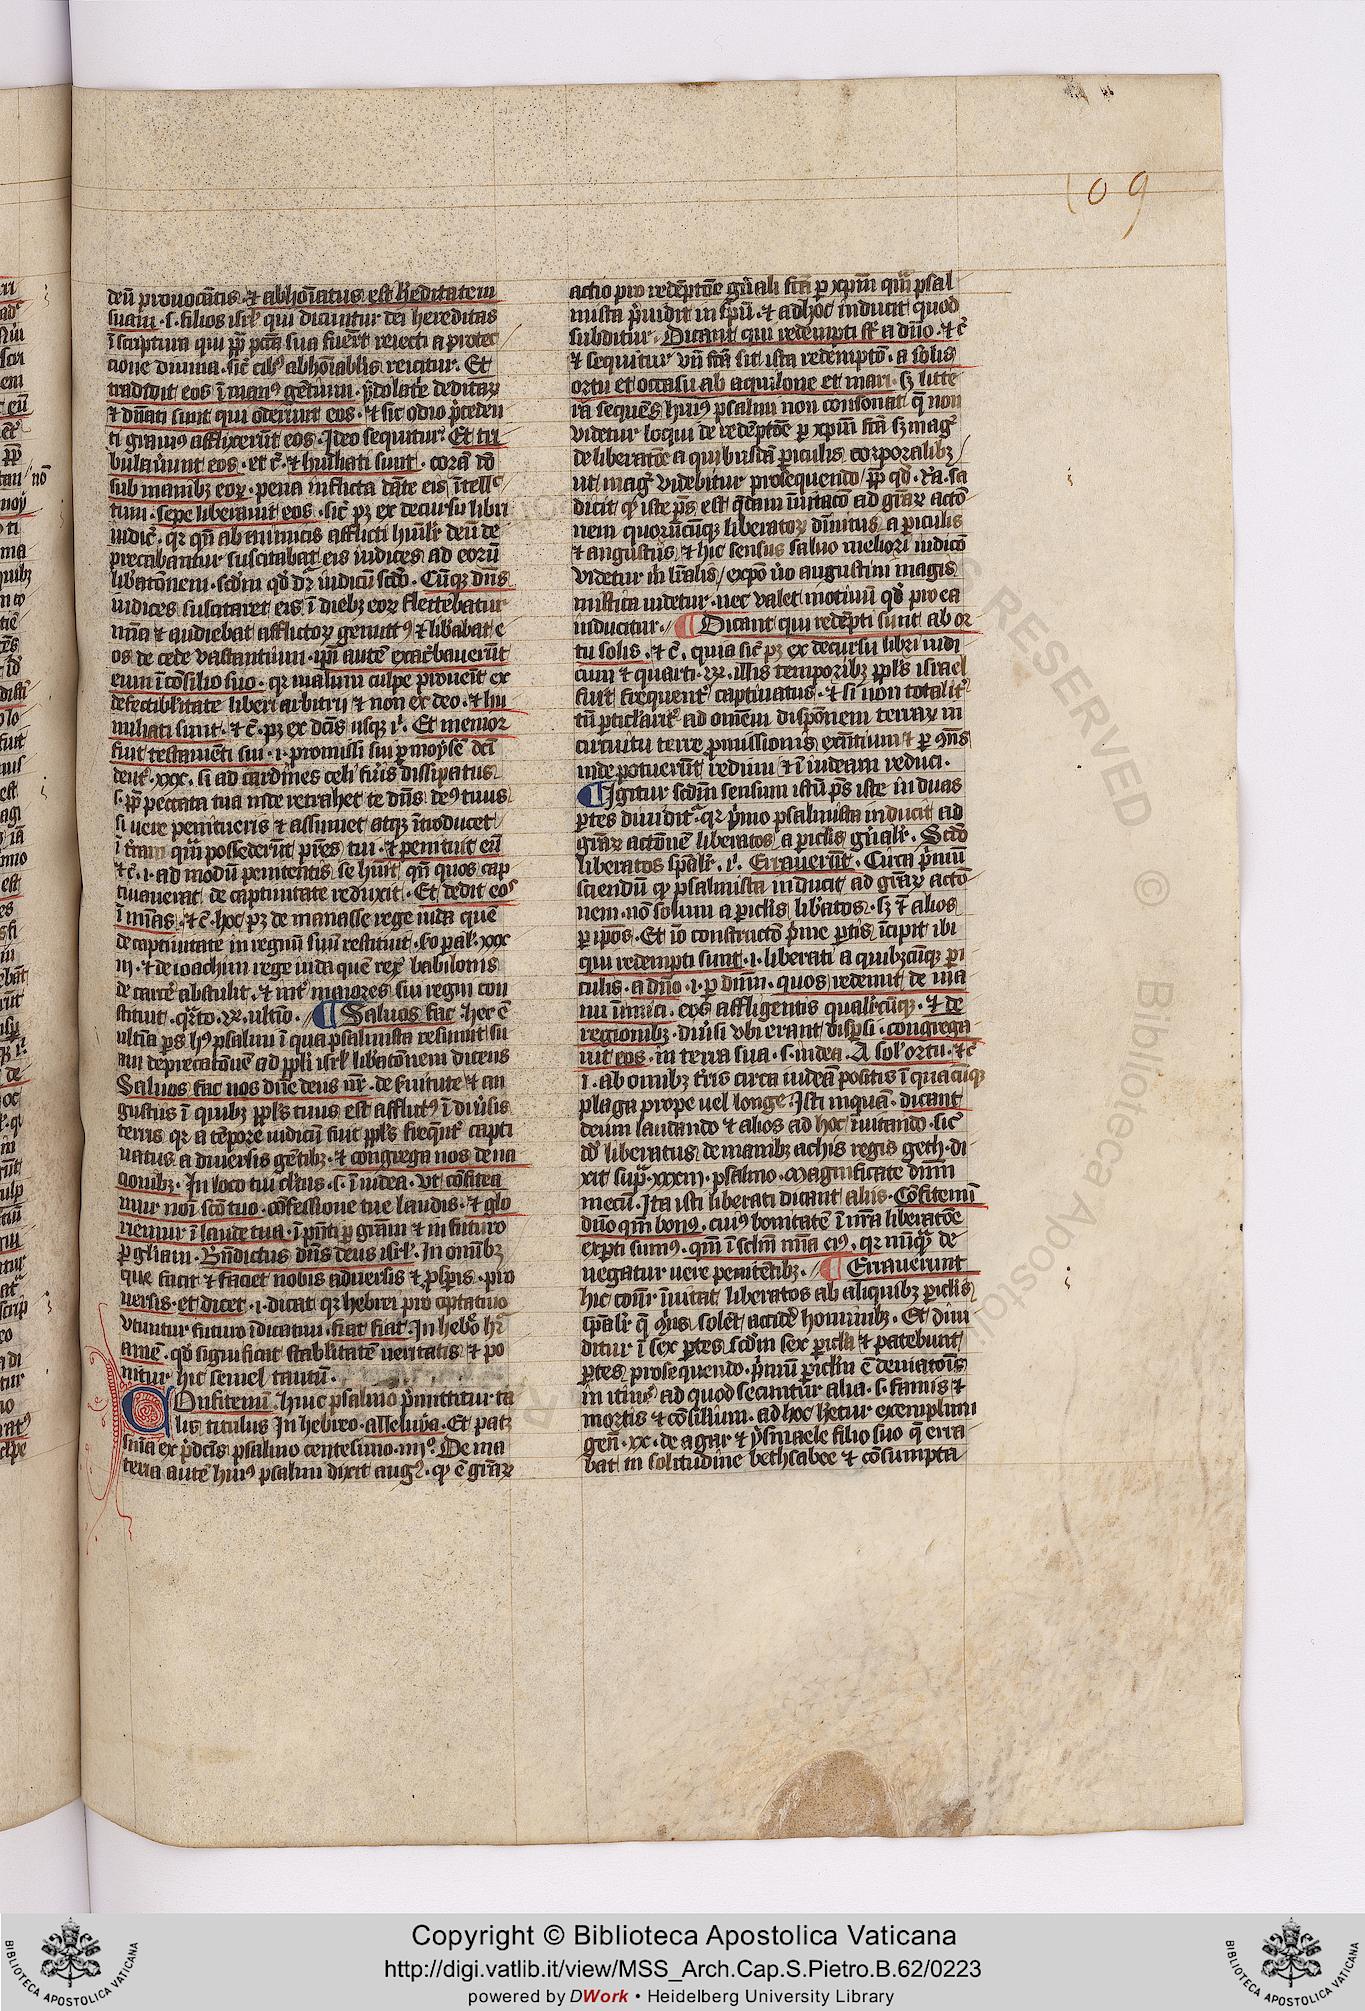 109
deū provocātis ⁊ abhoīatus est heditatem
suam .s. filios isrl' qui dicuntur dei hereditas
ī scriptura qui ꝓp̄ pctā sua fuer̄t reiecti a protec
cione divina. sic̄ cib9 abhoīablis reicitur. Et
tradidit eos ī man9 gētium. ydolatre deditaꝝ
⁊ dn̄ati sunt qui oderunt eos. ⁊ sic odio p̄ceden
ti grauī9 afflixerūt eos. Ideo sequitur. Et tri
bulaūunt eos. et c̄. ⁊ huīliati sunt. corā dō
sub manibꝫ eoꝝ. pena inflicta dāte eis ītellc̄
tum. sepe liberauit eos. sic̄ pꝫ ex decursu libri
iudic̄. qꝛ qn̄ ab inimicis afflicti huīlr̄ deū de
precabantur suscitabat eis iudices ad eorū
lib'atōnem. scdm̄ qd̄ dr̄ iudicū scdō. Cūqꝫ dn̄s
iudices suscitaret eis ī diebꝫ eoꝝ flectebatur
mīa ⁊ audiebat afflictoꝝ gemit9 ⁊ lib'abat e
os de cede vastantium. ip̄i autē exac̄bauerūt
eum ī cōsilio suo. qꝛ malum culpe proueīt ex
defectibilitate liberi arbitrii ⁊ non ex deo. ⁊ hu
miliati sunt. ⁊ c̄. pꝫ ex dcīs usqꝫ i'. Et memor
fuit testamēti sui .i. promissi sui ꝑ moysē dcī
deut' .xxx. si ad cardines celi fūis dissipatus
.s. ꝓp̄ peccata tua inde retrahet te dn̄s de9 tuus
si uere penitueris ⁊ assumet atqꝫ ītroducet
ī tr̄am quā possederūt pr̄es tui. ⁊ penituit eū
⁊ c̄ .i. ad modū penitentis se huīt qn̄ quos cap
tiuauerat de captiuitate reduxit. Et dedit eos
ī mīas. ⁊ c̄. hoc pꝫ de manasse rege iuda quē
de captiuitate in regnū suū restituit .ii. paral'. xxx
iii. ⁊ de ioachim rege iuda quē rex babilonis
de carc̄e abstulit. ⁊ int' maiores sui regni con
stituit. qr̄to .xx. ultīo. ¶ Saluos fac. hec ē
ultīa ps̄ h9 psalmi ī qua psalmista resumit su
am deprecatōnē ad ppl'i isrl' lib'atōnem dicens
Saluos fac nos dn̄e deus nr̄. de s'uitute ⁊ an
gustiis ī quibꝫ ppl's tuus est afflict9 ī diuīsis
terris qꝛ a tēpore iudicū fuit ppl's freqnt̄ capti
uatus a diuersis gētibꝫ. ⁊ congrega nos de na
cionibꝫ. In loco tuī cl't9s .s. ī iudea. Vt cōfitea
mur noī scō tuo. cōfessione tue laudis. ⁊ glo
riemur ī laude tua. ī pn̄ti ꝑ grām ⁊ in futuro
ꝑ gl'iam. Bn̄dictus dn̄s deus isrl'. In omībꝫ
que facit ⁊ faciet nobis aduersis ⁊ ꝓsp̄is. pro
uersis. et dicet .i. dicat qꝛ hebrei pro optatiuo
vtuntur futuro īdicatiui. fiat fiat. In hebō hr̄
amē. qd̄ significat stabilitatē ueritatis ⁊ po
nitur hic semel tantū.
COnfitemī. huic psalmo p̄mittitur ta
lis titulus In hebreo. alleluya. Et patꝫ
sn̄ia ex p̄dcīs psalmo centesimo .iiii°. De ma
teria autē hui9 psalmi dixit aug9. qꝫ ē grāꝝ
actio pro redēptōe gn̄ali fcā ꝑ xpm̄ quā psal
mista p̄uidit in spū. ⁊ ad hoc inducit quod
subditur. Dicant qui redempti st̄ a dn̄o. ⁊ c̄
⁊ sequitur vn̄ fcā sit ista redemptō. a solis
ortu et occasu ab aquilone et mari. sꝫ litte
ra sequēs hui9 psalmi non consonat qꝛ non
videtur loqui de redēptōe ꝑ xpm̄ fcā sꝫ mag9
de liberatōe a quibusdā ꝑiculis corporalibꝫ
ut mag9 videbitur prosequendo. ꝓp̄ qd̄. ra. sa
dicit qꝫ iste ps̄ est q̄dam īuitatō ad grāꝝ actō
nem quorūcūqꝫ liberatoꝝ dīnitus a ꝑiculis
⁊ angustiis, ⁊ hic sensus saluo meliori iudicō
videtur m̄ līralis, expō ūo augustini magis
mistica uidetur. nec valet motiuū qd̄ pro ea
inducitur. ¶ Dicant qui redēpti sunt ab or
tu solis. ⁊ c̄. quia sic̄ pꝫ ex decursu libri iudi
cum ⁊ quarti .rꝫ. illis temporibꝫ ppl's israel
fuit frequent' captiuatus. ⁊ si non totalit'
tn̄ ꝑticl'arit' ad omēm disꝑōnem terraꝝ in
circuitu terre ꝓmissionis exn̄tium ⁊ ꝑ 9n̄s
inde potuerūt redimi ⁊ ī iudeam reduci.
¶ Igitur scdm̄ sensum istū ps̄ iste in duas
ꝑtes diuidit'. qꝛ p̄mo psalmista inducit ad
grāꝝ actōnē liberatos a ꝑiclīs gn̄alr̄. Scdō
liberatos spālr̄. i'. Errauerūt. Circa p̄mū
sciendū qꝫ psalmista inducit ad grāꝝ actō
nem. nō solum a ꝑiclīs lib'atos. sꝫ ⁊ alios
ꝑ ip̄os. Et iō constructō p̄me ꝑtis īcipit ibi
qui redempti sunt .i. liberati a quibꝫcūqꝫ ꝑi
culis. a dn̄o .i. ꝑ dn̄m. quos redemit de ma
nu inīmici. eos affligentis qualit'cūqꝫ. ⁊ de
regionibꝫ. diūsi vbi erant disꝑsi. congrega
uit eos. in terra sua .s. iudea. A sol' ortu. ⁊ c̄
.i. ab omībꝫ tr̄is circa iudeā positis ī quacūqꝫ
plaga prope uel longe. Isti inquā. dicant
deum laudando ⁊ alios ad hoc īuitando. sic̄
dd̄ liberatus de manibꝫ achis regis geth. di
xit sup̄ .xxxiii. psalmo. Magnificate dn̄m
mecū. Ita isti liberati dicant aliis. Cōfitemī
dn̄o qm̄ bon9. cui9 bonitatē ī nr̄a liberatōe
exꝑti sum9. qm̄ ī sclm̄ mīa ei9. qꝛ nūqȝ de
negatur uere penitētibꝫ. ¶ Errauerunt
hic cōnr̄ īuitat liberatos ab aliquibꝫ ꝑiclīs
spālr̄ q̄ 9īus solēt accid'e hominibꝫ. Et diui
ditur ī sex ꝑtes scdm̄ sex ꝑicl'a ⁊ patebunt
ꝑtes prosequendo. p̄mū ꝑiclm̄ ē deuiatōis
in itine' ad quod secuntur alia .s. famis ⁊
mortis ⁊ cōsilium. ad hoc h̄etur exemplum
gen̄ .xx. de agar ⁊ ysmaele filio suo q̄ erra
bat in solitudine bethsabee ⁊ cōsumpta
Copyright © Biblioteca Apostolica Vaticana
http://digi.vatlib.it/view/MSS_Arch.Cap.S.Pietro.B.62/0223
powered by DWork • Heidelberg University Library